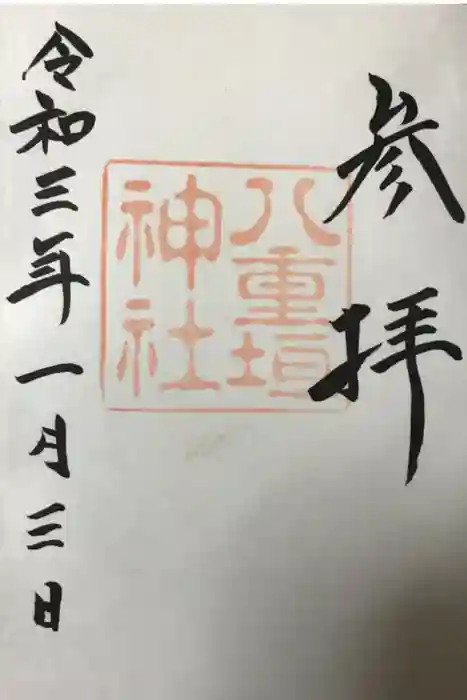 参拝
八重垣
神社
令和三年一月三日